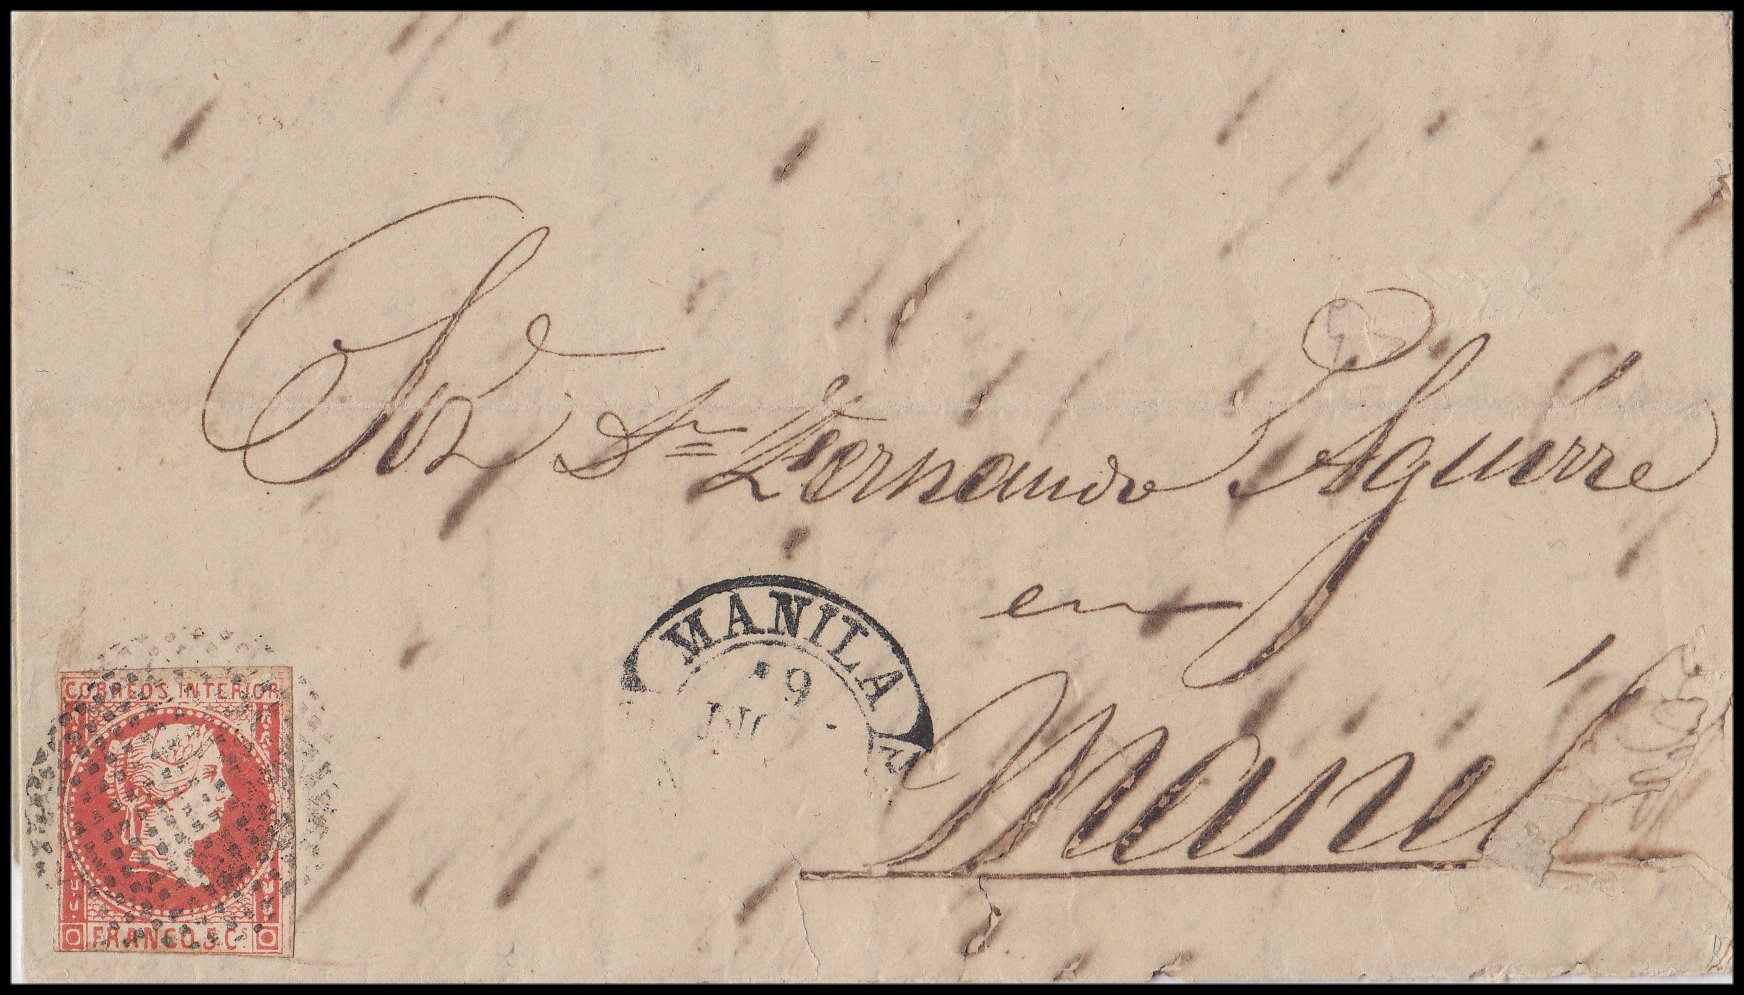 Sor Dn Fernando Aguirre
en
Manil
MANILA
9
CORREOS INTERIOR
FRANCO 5 Cs